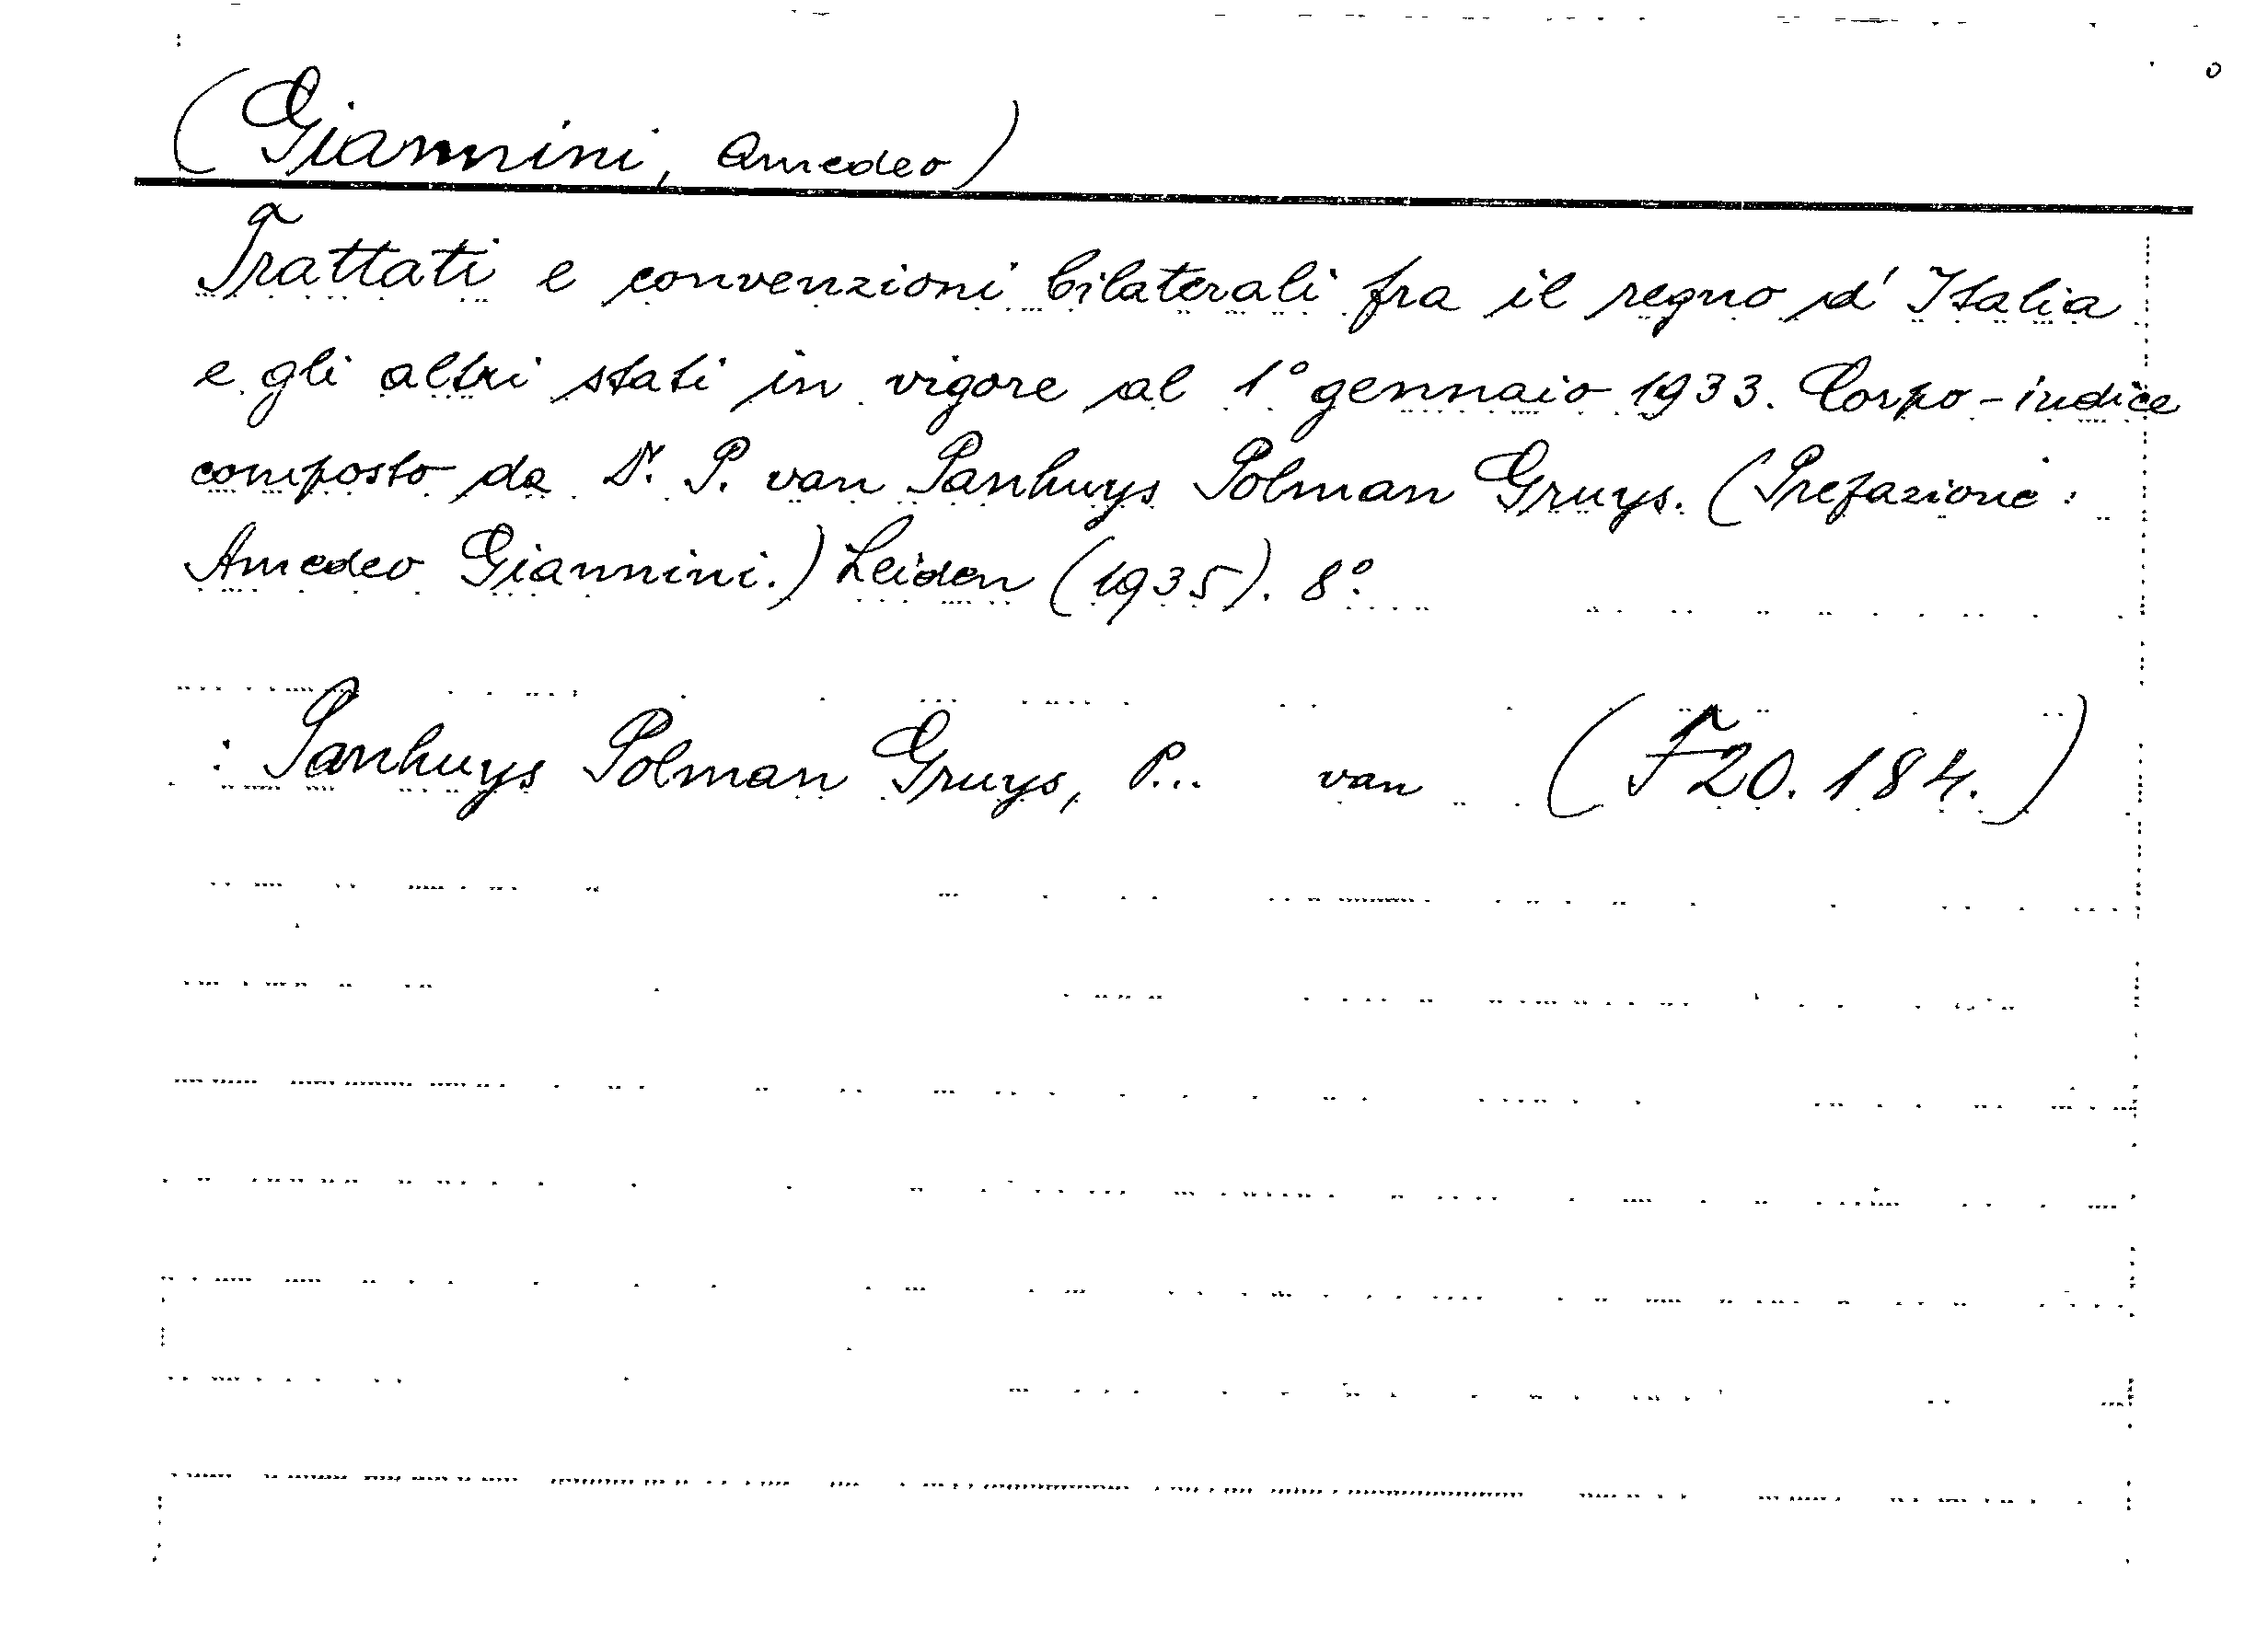 (Giannini, Amedeo)
Trattati e convenzioni bilaterali fra il regno d'Italia
e gli altri stati in vigore al 1° gennaio 1933. Corpo-indice
composto da Dr. P. van Panhuys Polman Gruys. (Prefazione:
Amedeo Giannini.) Leiden (1935). 8°.
: Panhuys Polman Gruys, P... van (F20.184.)